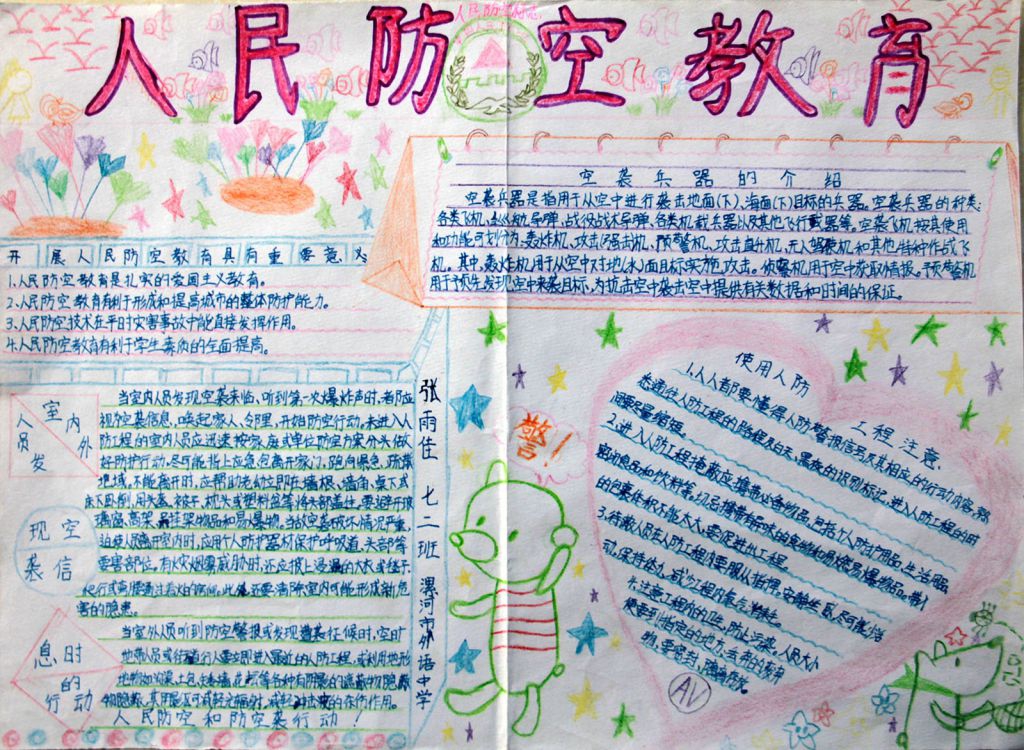 人民防空教育
空袭兵器的介绍
空袭兵器是指用于从空中进行袭击地面(下)、海面(下)目标的兵器。空袭兵器的种类:
各类飞机、巡航导弹、战役战术导弹、各类机载兵器以及其他飞行武器等。空袭飞机按其使用
和功能可划分为,轰炸机、攻击(强击)机、预警机、攻击直升机、无人驾驶机和其他特种作战飞
机。其中,轰炸机用于从空中对地(水)面目标实施攻击。侦察机用于空中获取情报。预警机
用于预先发现空中来袭目标,为抗击空中袭击空中提供有关数据和时间的保证。
开展人民防空教育具有重要意义
1.人民防空教育是扎实的爱国主义教育。
2.人民防空教育有利于形成和提高城市的整体防护能力。
3.人民防空技术在平时灾害事故中能直接发挥作用。
4.人民防空教育有利于学生素质的全面提高。
室内外
人员发
现空
袭信
息时
的
行动
当室内人员发现空袭来临,听到第一次爆炸声时,者即应
视空袭信息,唤起家人、邻里,开始防空行动,未进入人
防工程的室内人员应迅速按家庭或单位防空方案分头做
好防护行动。尽可能背上应急包离开家门,跑向紧急、疏散
地域,不能离开时,应帮助老幼立即在墙根、墙角、桌下或
床下卧倒,用夹盖、被子、枕头或塑料盆等将头部盖住,要避开玻
璃窗、高架、悬挂架物品和易爆物。当故空袭破坏情况严重,
迫使人员离开室内时,应用个人防护器材保护呼吸道、头部等
要害部位,有炊火烟雾威胁时,还应披上浸湿的大衣或毯子,
爬行或弯腰通过着火的房间。此外,还要清除室内可能形成新危
害的隐患。
当室外人员听到防空警报或发现遭袭征候时,空旷
地带人员或行道行人要立即进入最近的人防工程,或利用地形
人民防空和防空袭行动!
张雨佳 七二班 漯河市外语中学
警!
使用人防
工程注意:
1.人人都要懂得人防警报信号及其相应的行动内容,熟
悉通往人防工程的路程及白天、黑夜的识别标记,进入人防工程的时
间要尽量缩短。
2.进入人防工程掩蔽应携带必备物品,包括个人防护用品、生活服
的包裹体积不能太大,要促进出工程。
3.待蔽人员在人防工程内要服从指挥,安静坐卧,尽可能少活
动,保持体力,减少工程内氧气消耗。
4.注意工程内的卫生,防止污染,人员大小
便要到指定的地方,